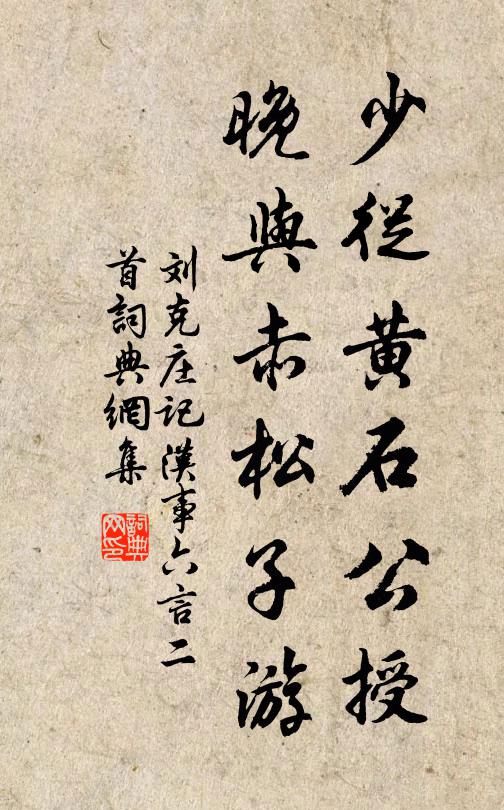 少從黄石公授
晚與赤松子游
刘克庄記漢事六言二
首詞典網集
詞典
网印